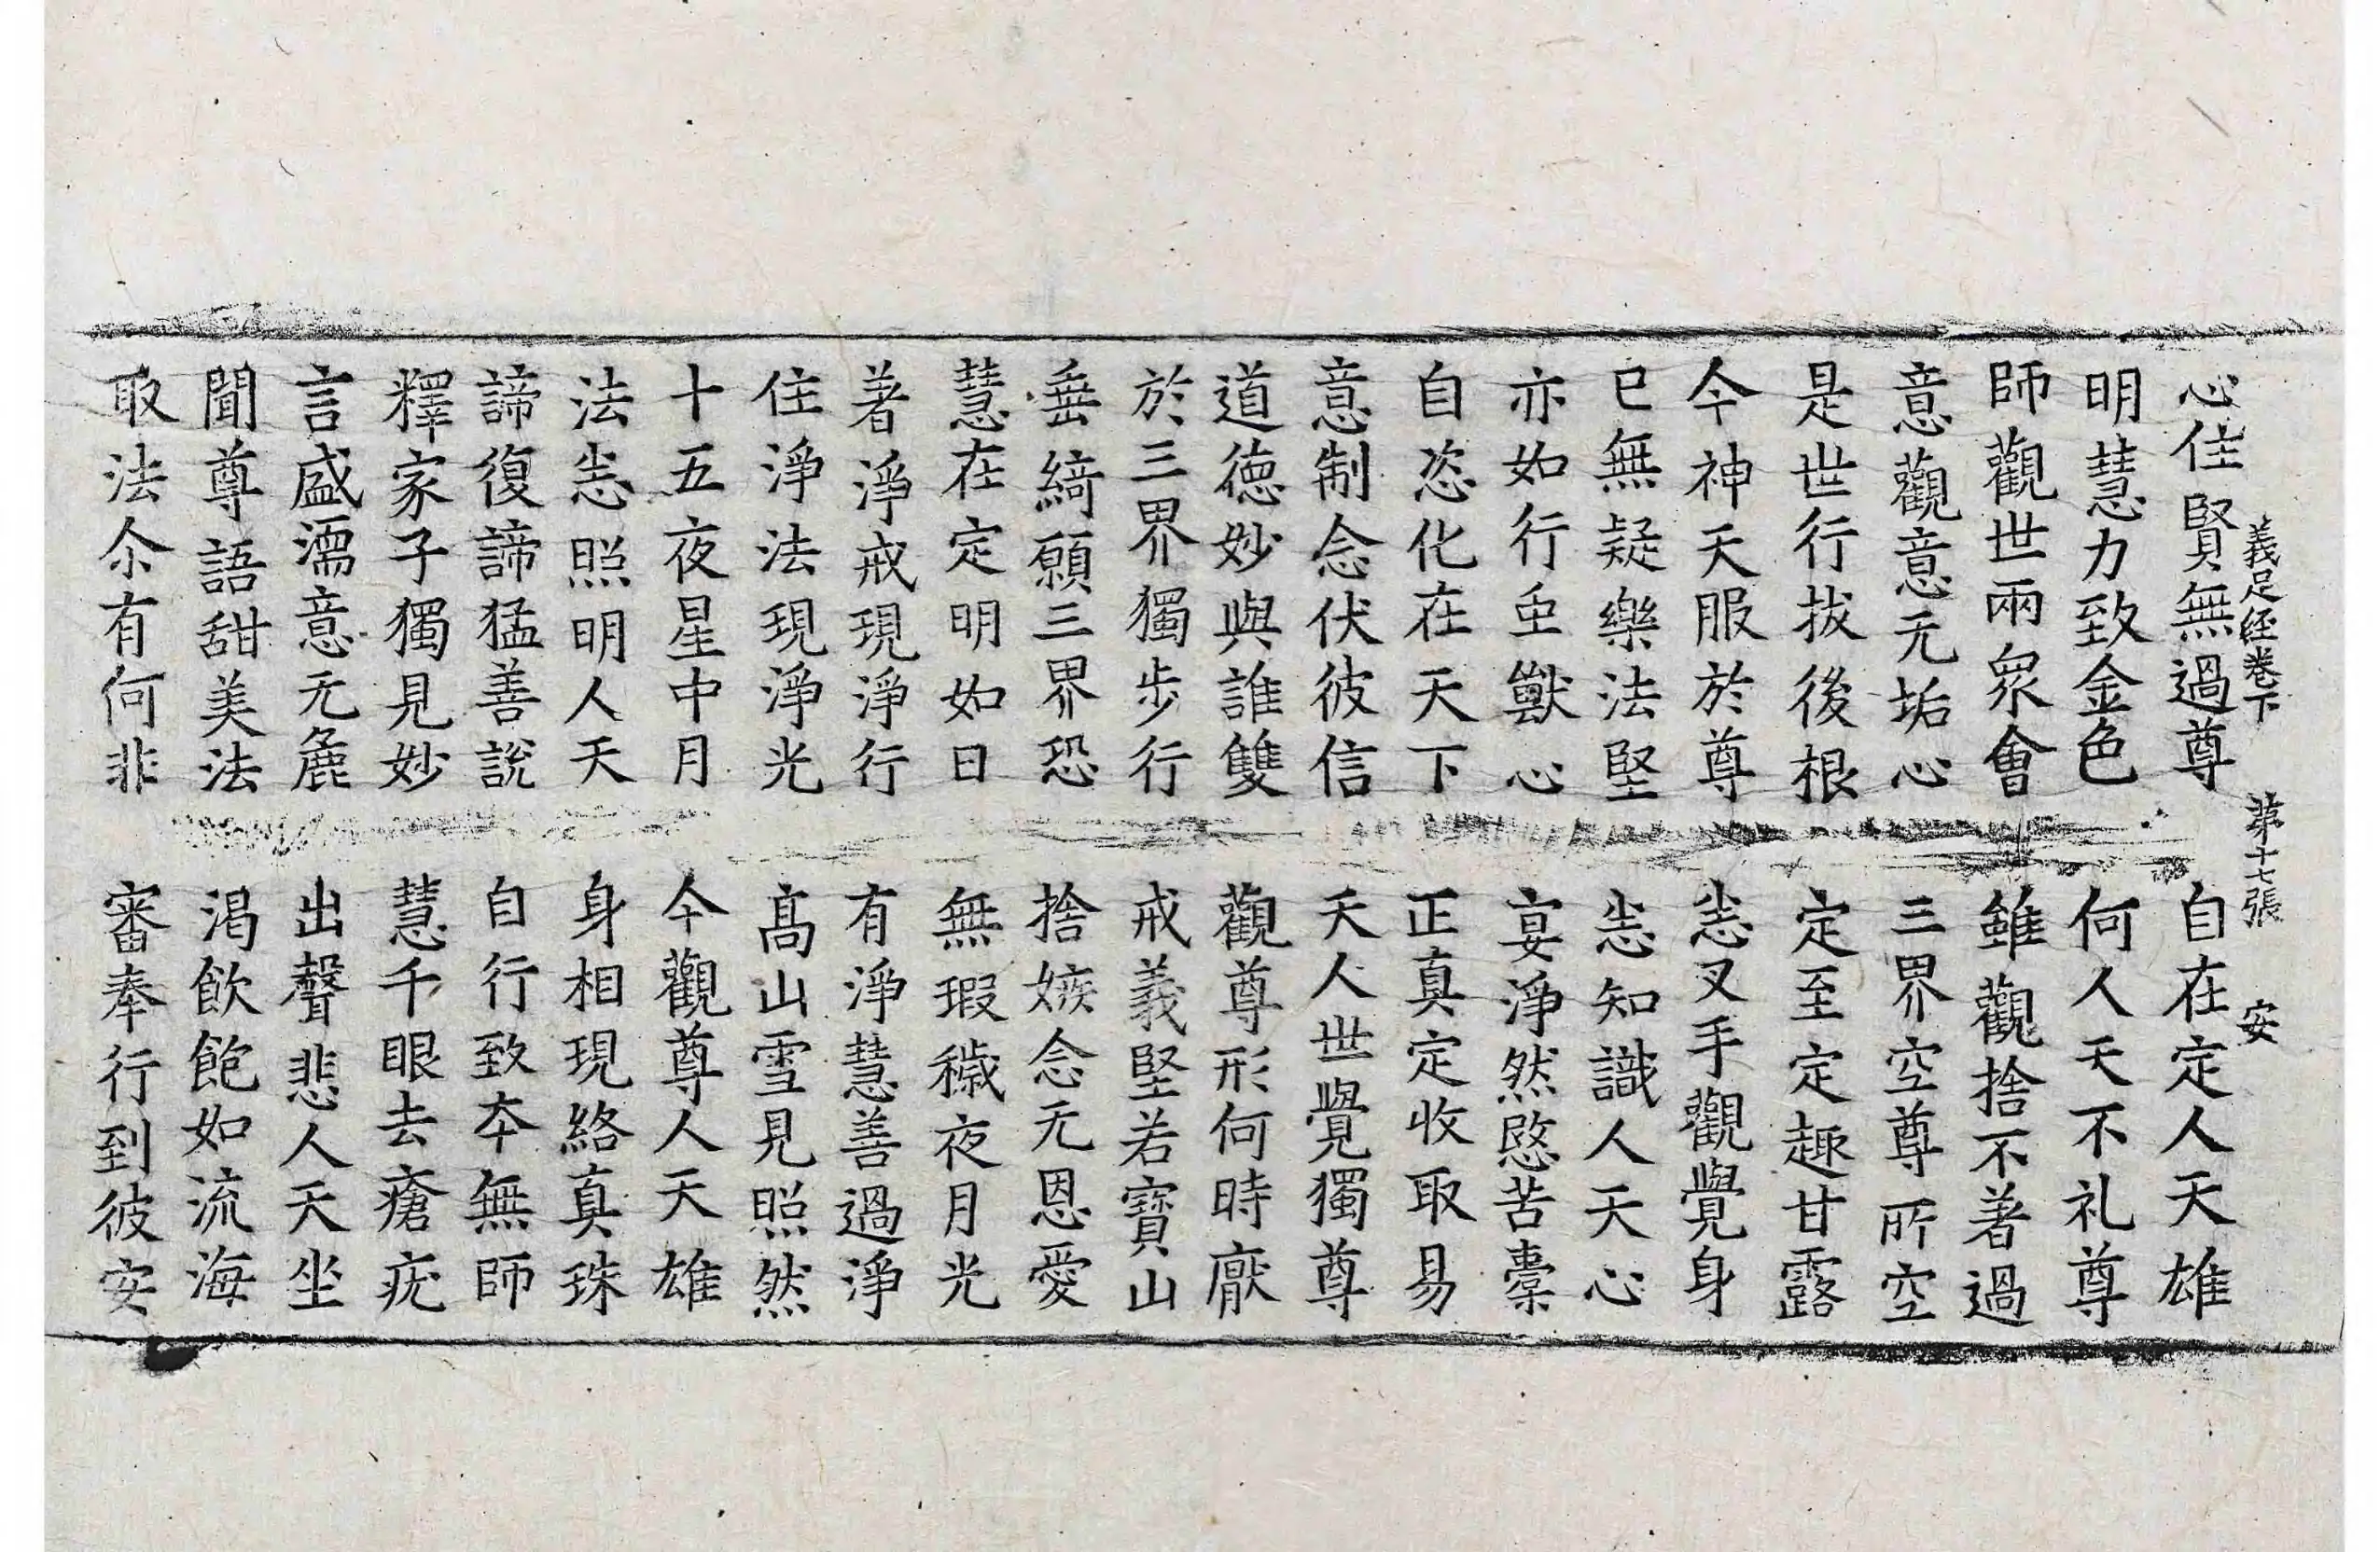 義足經卷下　第十七張　安
心住賢無過尊　自在定人天雄
明慧力致金色　何人天不礼尊
師觀世兩眾會　雖觀捨不著過
意觀意无垢心　三界空尊所空
是世行拔後根　定至定趣甘露
今神天服於尊　悉叉手觀覺身
已無疑樂法堅　悉知識人天心
亦如行虫獸心　宴淨然愍苦橐
自恣化在天下　正真定收取易
意制念伏彼信　天人世覺獨尊
道德妙與誰雙　觀尊形何時厭
於三界獨步行　戒義堅若寶山
垂綺願三界恐　捨嫉念无恩愛
慧在定明如日　無瑕穢夜月光
著淨戒現淨行　有淨慧善過淨
住淨法現淨光　髙山雪見照然
十五夜星中月　今觀尊人天雄
法悉照明人天　身相現絡真珠
諦復諦猛善說　自行致夲無師
釋家子獨見妙　慧千眼去瘡疣
言盛濡意无麁　出聲悲人天坐
聞尊語甜美法　渴飲飽如流海
取法尒有何非　審奉行到彼安